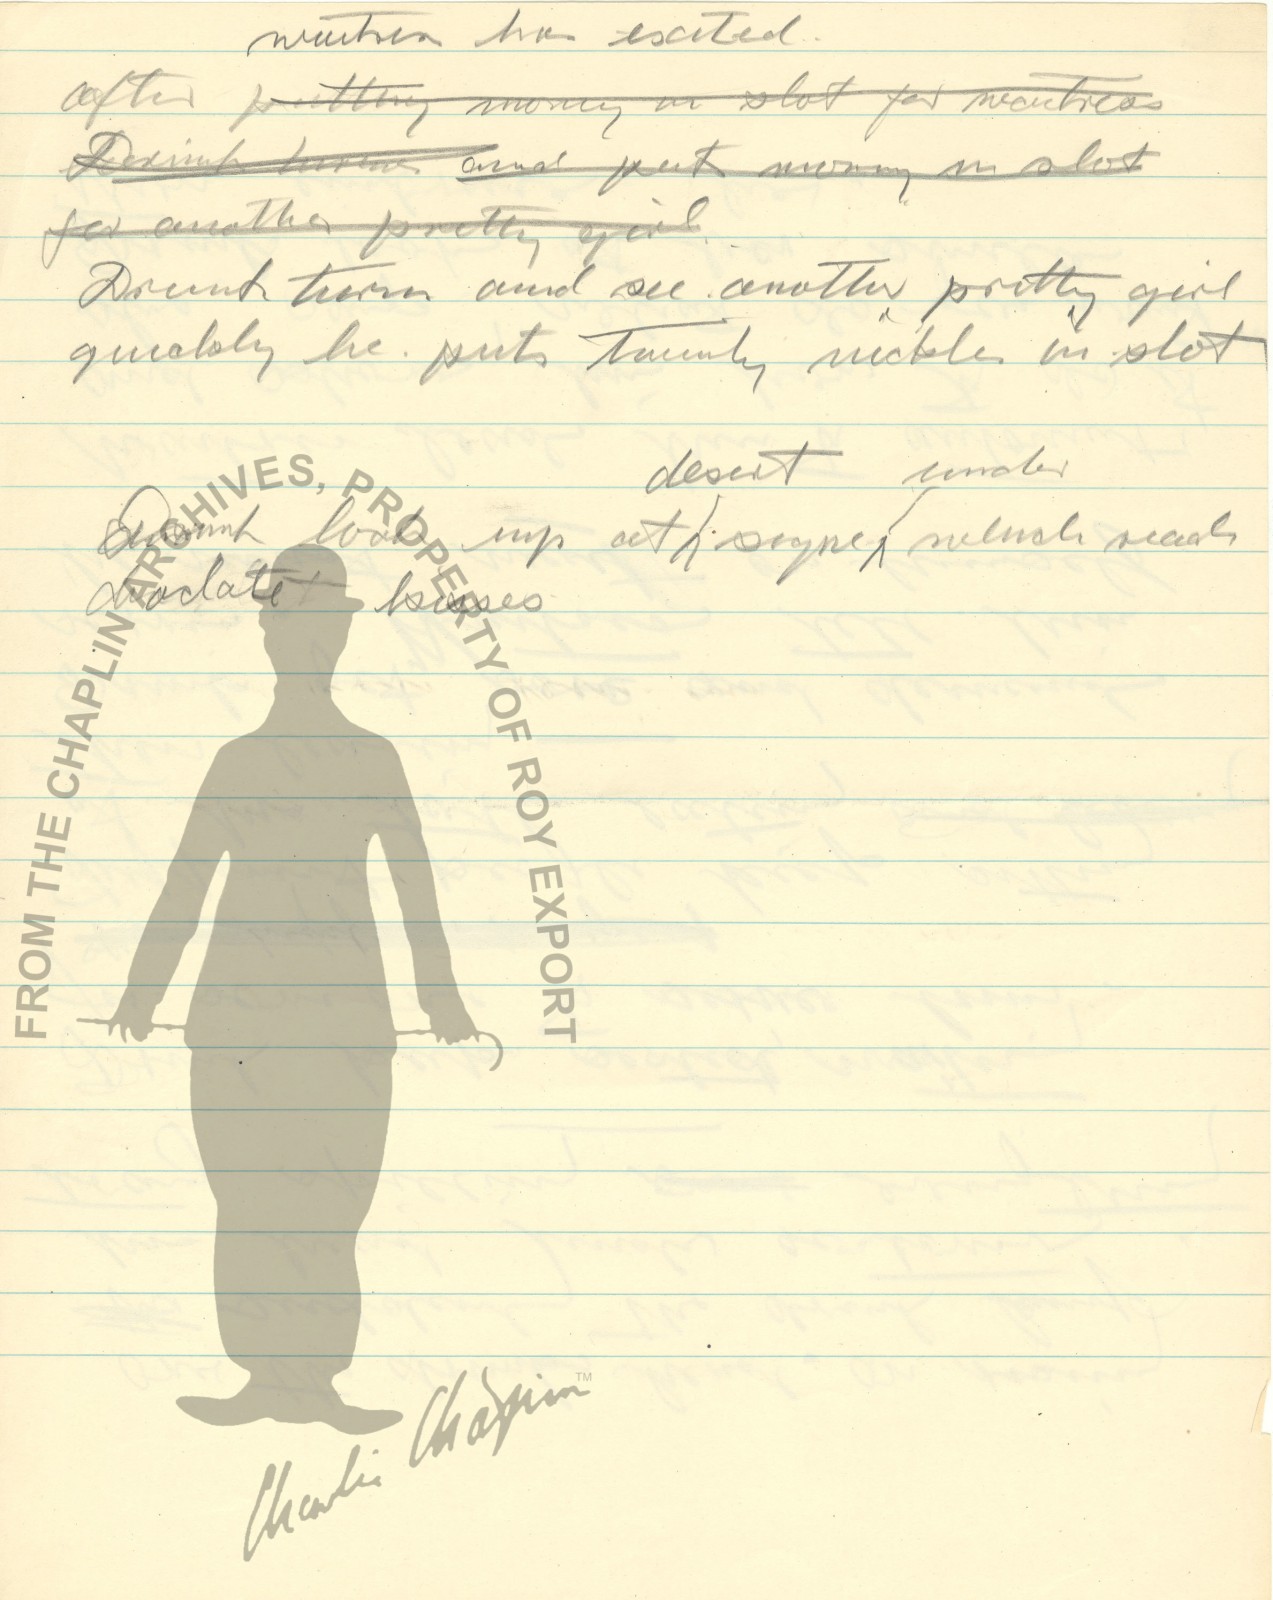 waitress has exited.
after putting money in slot for waitress
Drunk turns and put money in slot
for another pretty girl.
Drunk turns and see another pretty girl
quickly he puts Twenty nickles in slot
desert under
Drunk look up at signe which reads
choclate kisses
FROM THE CHAPLIN ARCHIVES, PROPERTY OF ROY EXPORT
Charlie Chaplin TM